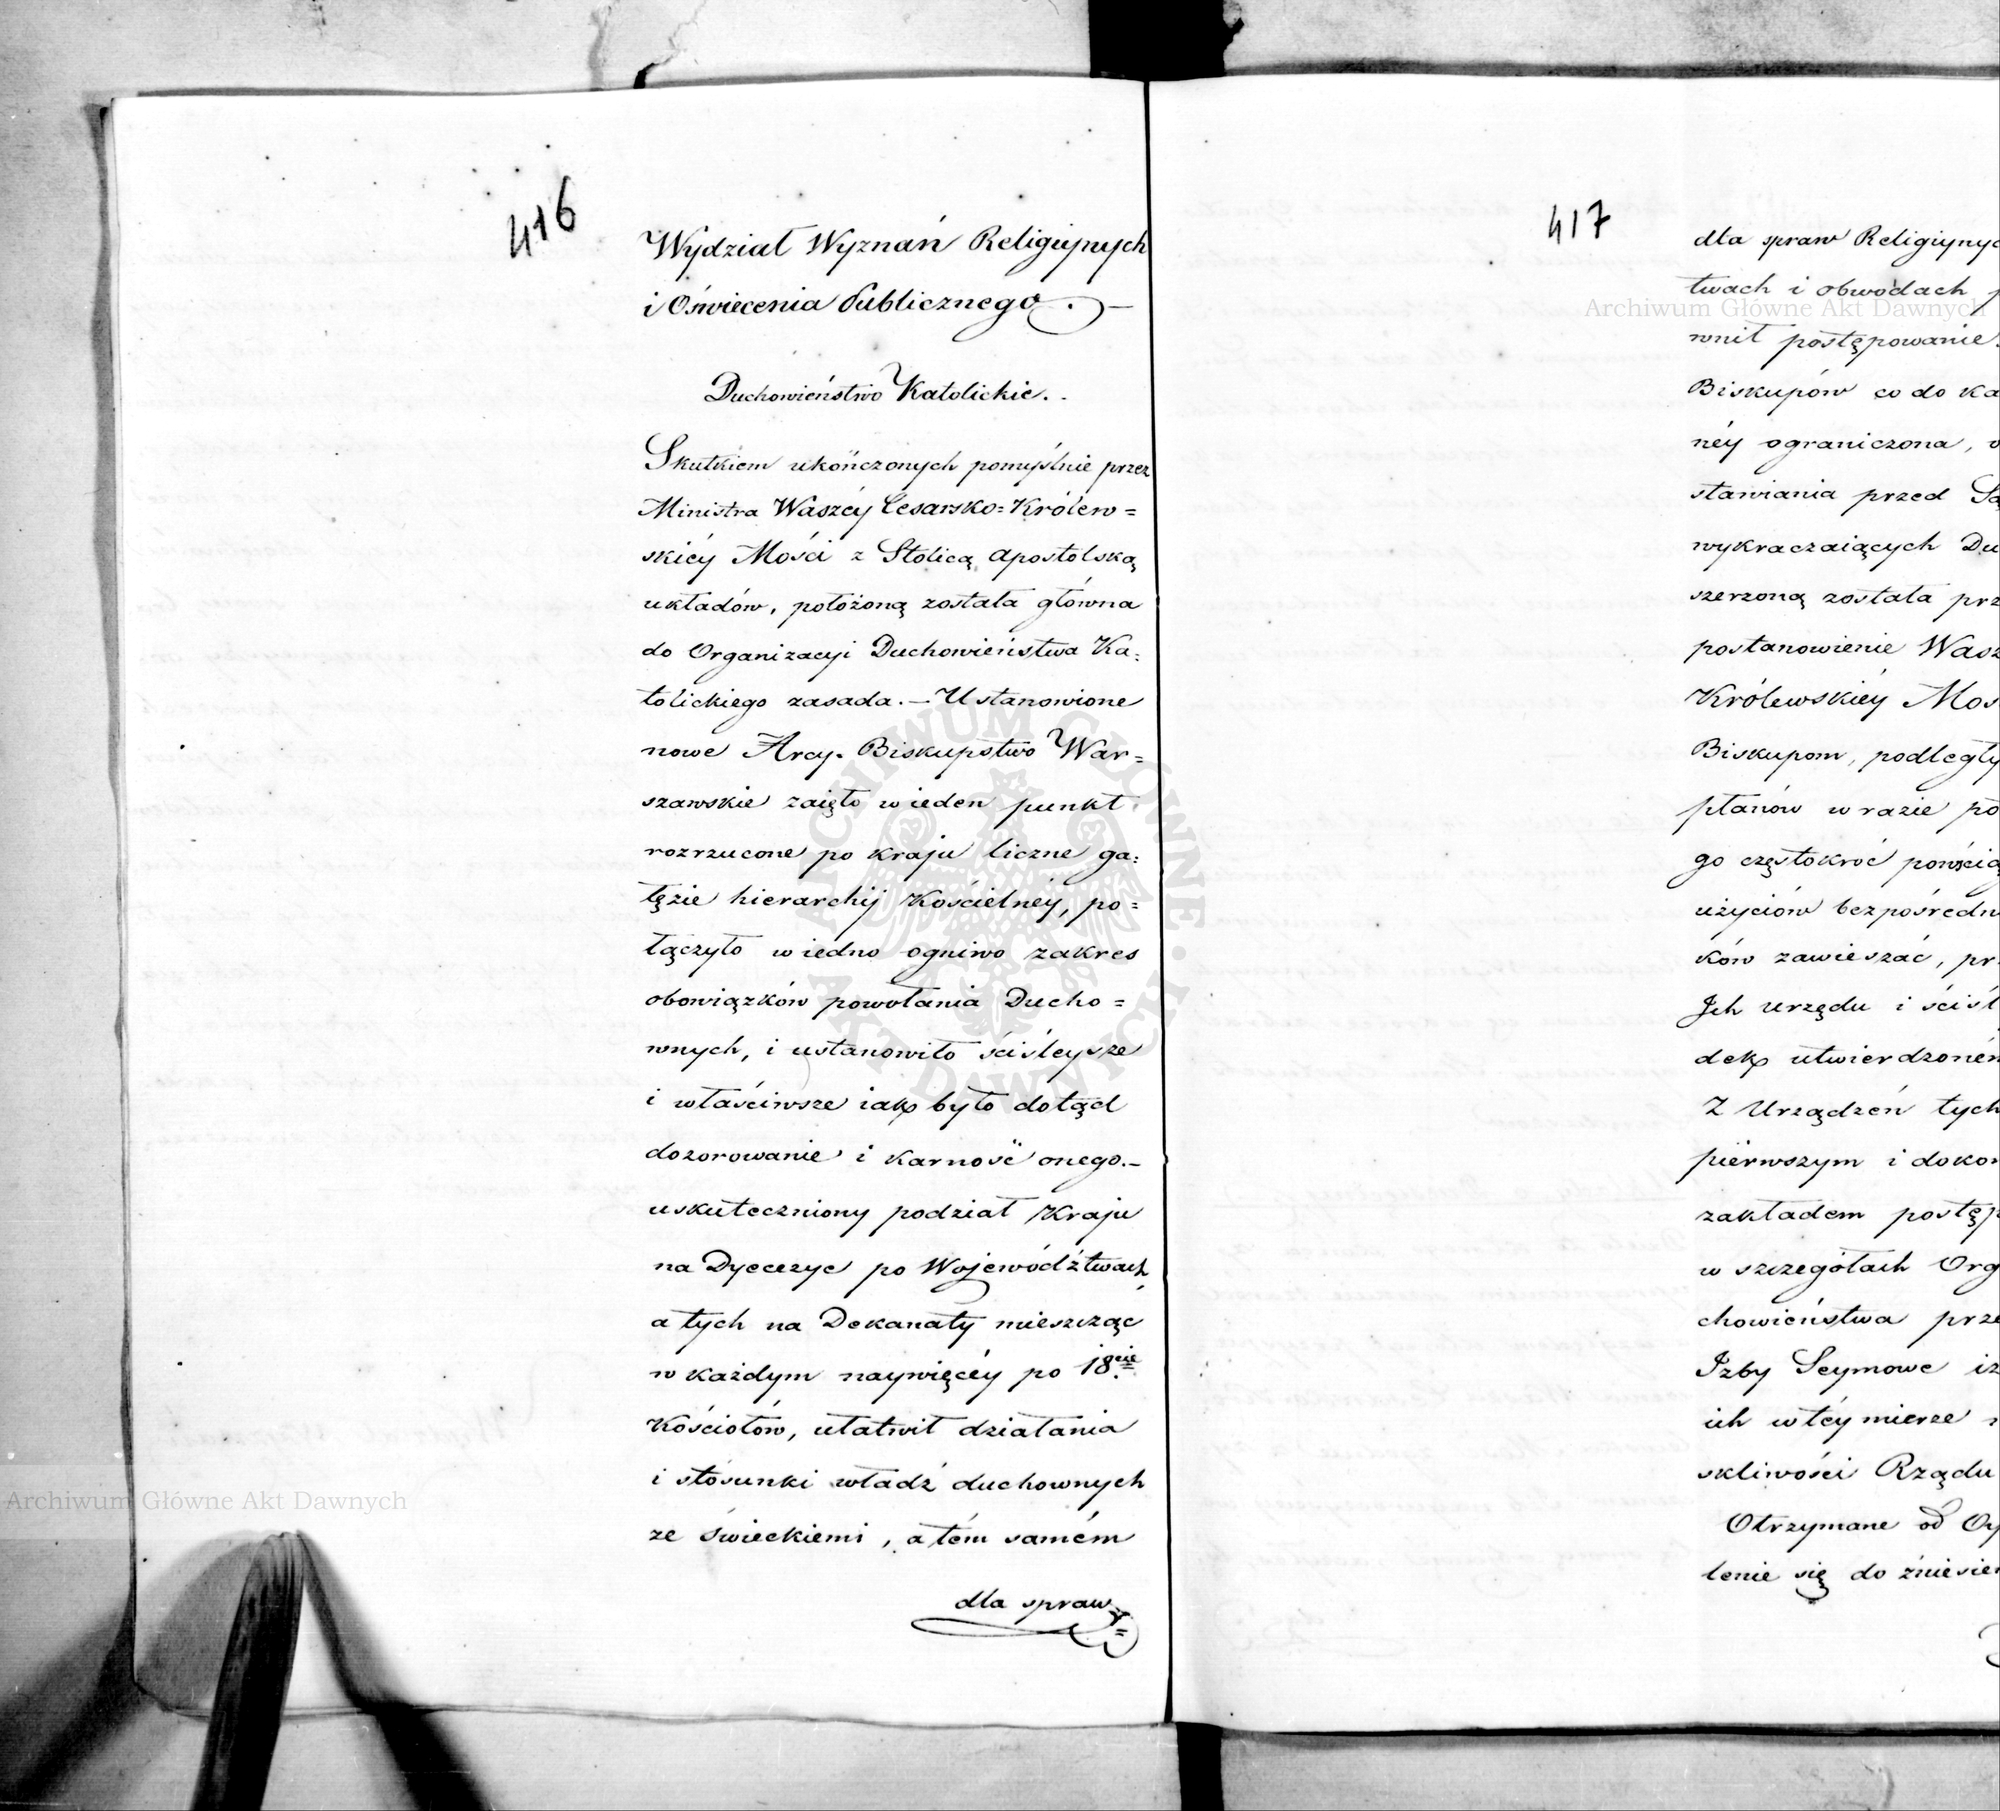 416
Wydział Wyznań Religijnych
i Oświecenia Publicznego. —
Duchowieństwo Katolickie. .
Skutkiem ukończonych pomyślnie przez
Ministra Waszéy Cesarsko=Królew=
skiéy Mości z Stolicą Apostolską
układów, położoną została główna
do Organizacyi Duchowieństwa Ka=
tolickiego zasada. — Ustanowione
nowe Arcy-Biskupstwo War=
szawskie zaięło w ieden punkt
rozrzucone po kraju liczne ga=
łęzie hierarchij Kościelnéy, po=
łączyło w iedno ogniwo zakres
obowiązków powołania Ducho=
wnych, i ustanowiło ściśleysze
i właściwsze iak było dotąd
dozorowanie i karność onego. —
uskuteczniony podział Kraju
na Dyecezye po Województwach,
a tych na Dekanaty mieszcząc
w każdym naywięcéy po 18cie
Kościołów, ułatwił działania
i stosunki władz duchownych
ze świeckiemi, a tém samém
dla spraw =
417
dla spraw Religiynyc
twach i obwodach p
wnił postępowanie.
Biskupów co do ka
néy ograniczona, o
stawiania przed Są
wykraczaiących Du
szerzoną została prz
postanowienie Wasz
Królewskiéy Mos
Biskupom, podległy
płanów w razie po
go częstokroć powścią
użyciów bezpośredn
ków zawieszać, pr
Ich urzędu i ściśl
dek utwierdzoném
Z Urządzeń tych
piérwszym i dokon
zakładem postęp
w szczegółach Org
chowieństwa prze
Izby Seymowe iz
ich w téy mierze
skliwości Rządu
Otrzymane od Oy
lenie się do zniesien
Archiwum Główne Akt Dawnych
Archiwum Główne Akt Dawnych
ARCHIWUM GŁÓWNE AKT DAWNYCH